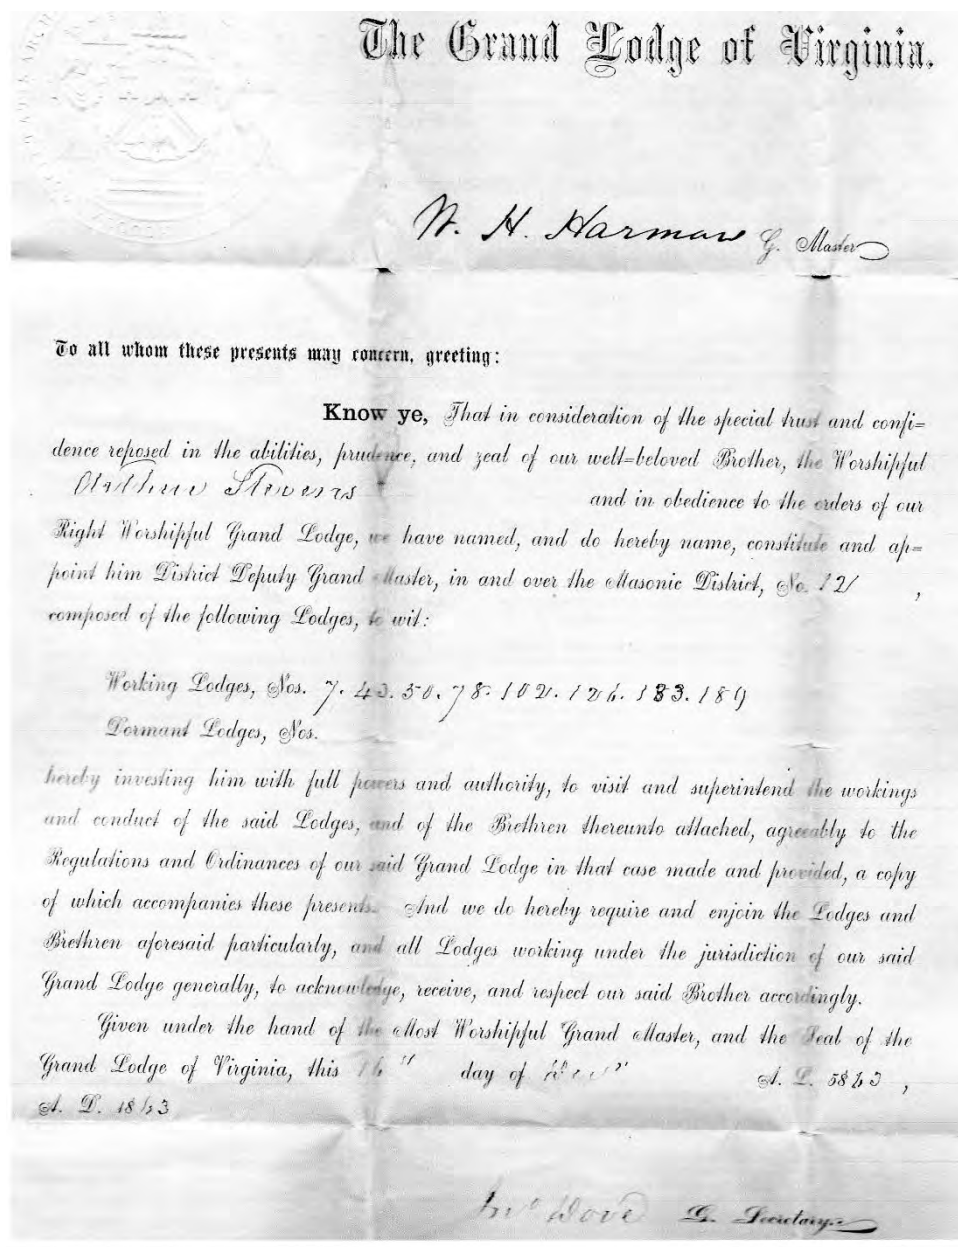 The Grand Lodge of Virginia.
W. H. Harman G. Master
To all whom these presents may concern, greeting:
Know ye, That in consideration of the special trust and confi=
dence reposed in the abilities, prudence, and zeal of our well=beloved Brother, the Worshipful
Arthur Stevens and in obedience to the orders of our
Right Worshipful Grand Lodge, we have named, and do hereby name, constitute and ap=
point him District Deputy Grand Master, in and over the Masonic District, No. 12 ,
composed of the following Lodges, to wit:
Working Lodges, Nos. 7. 43. 50. 78. 102. 126. 183. 189
Dormant Lodges, Nos.
hereby investing him with full powers and authority, to visit and superintend the workings
and conduct of the said Lodges, and of the Brethren thereunto attached, agreeably to the
Regulations and Ordinances of our said Grand Lodge in that case made and provided, a copy
of which accompanies these presents. And we do hereby require and enjoin the Lodges and
Brethren aforesaid particularly, and all Lodges working under the jurisdiction of our said
Grand Lodge generally, to acknowledge, receive, and respect our said Brother accordingly.
Given under the hand of the Most Worshipful Grand Master, and the Seal of the
Grand Lodge of Virginia, this 16" day of A. L. 5863 ,
A. D. 1863
Jno Dove G. Secretary.